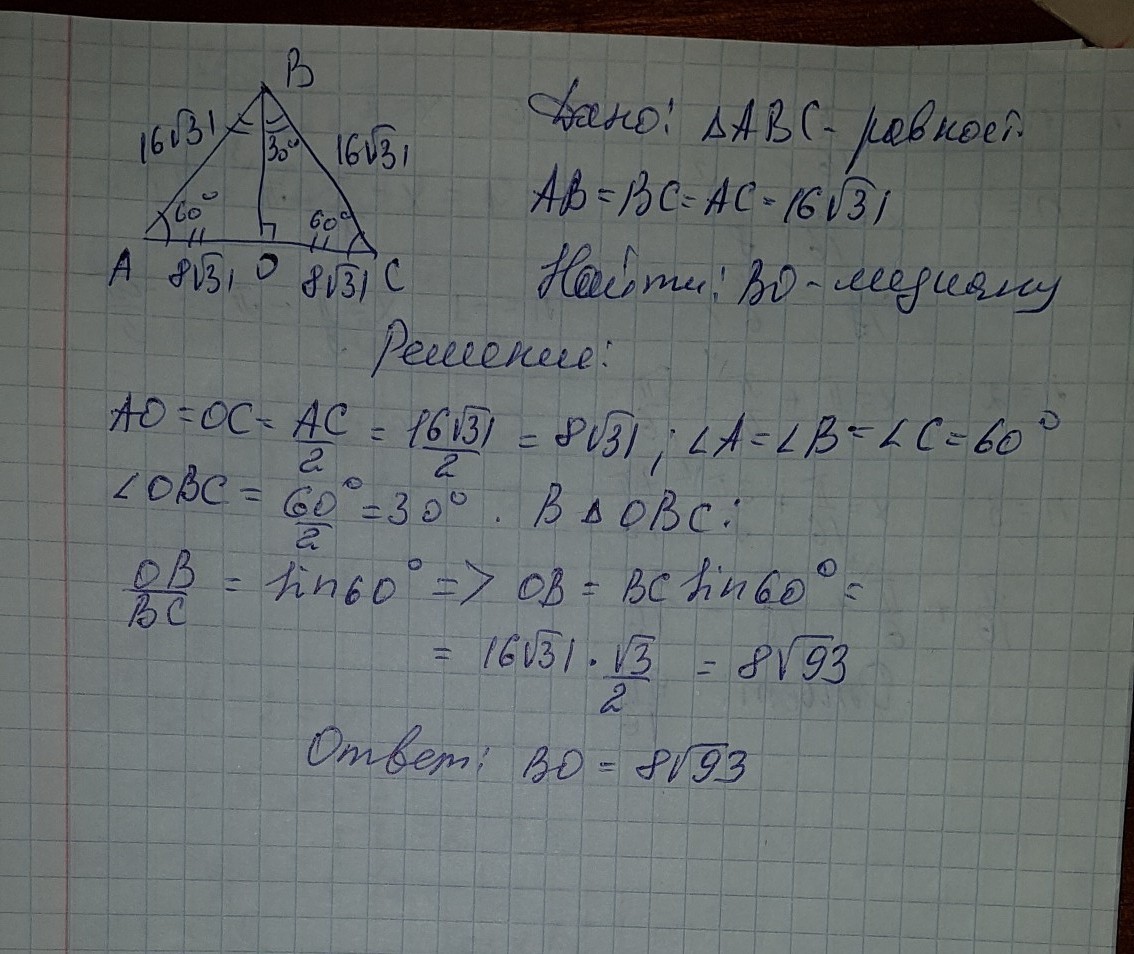 B
16√31
30°
16√31
60°
60°
A
8√31
O
8√31
C
Дано: ΔABC - равност.
AB = BC = AC = 16√31
Найти: BO - медиану
Решение:
AO = OC = AC/2 = 16√31/2 = 8√31; ∠A = ∠B = ∠C = 60°
∠OBC = 60°/2 = 30°. В Δ OBC:
OB/BC = sin60° => OB = BC sin60° =
= 16√31 · √3/2 = 8√93
Ответ: BO = 8√93